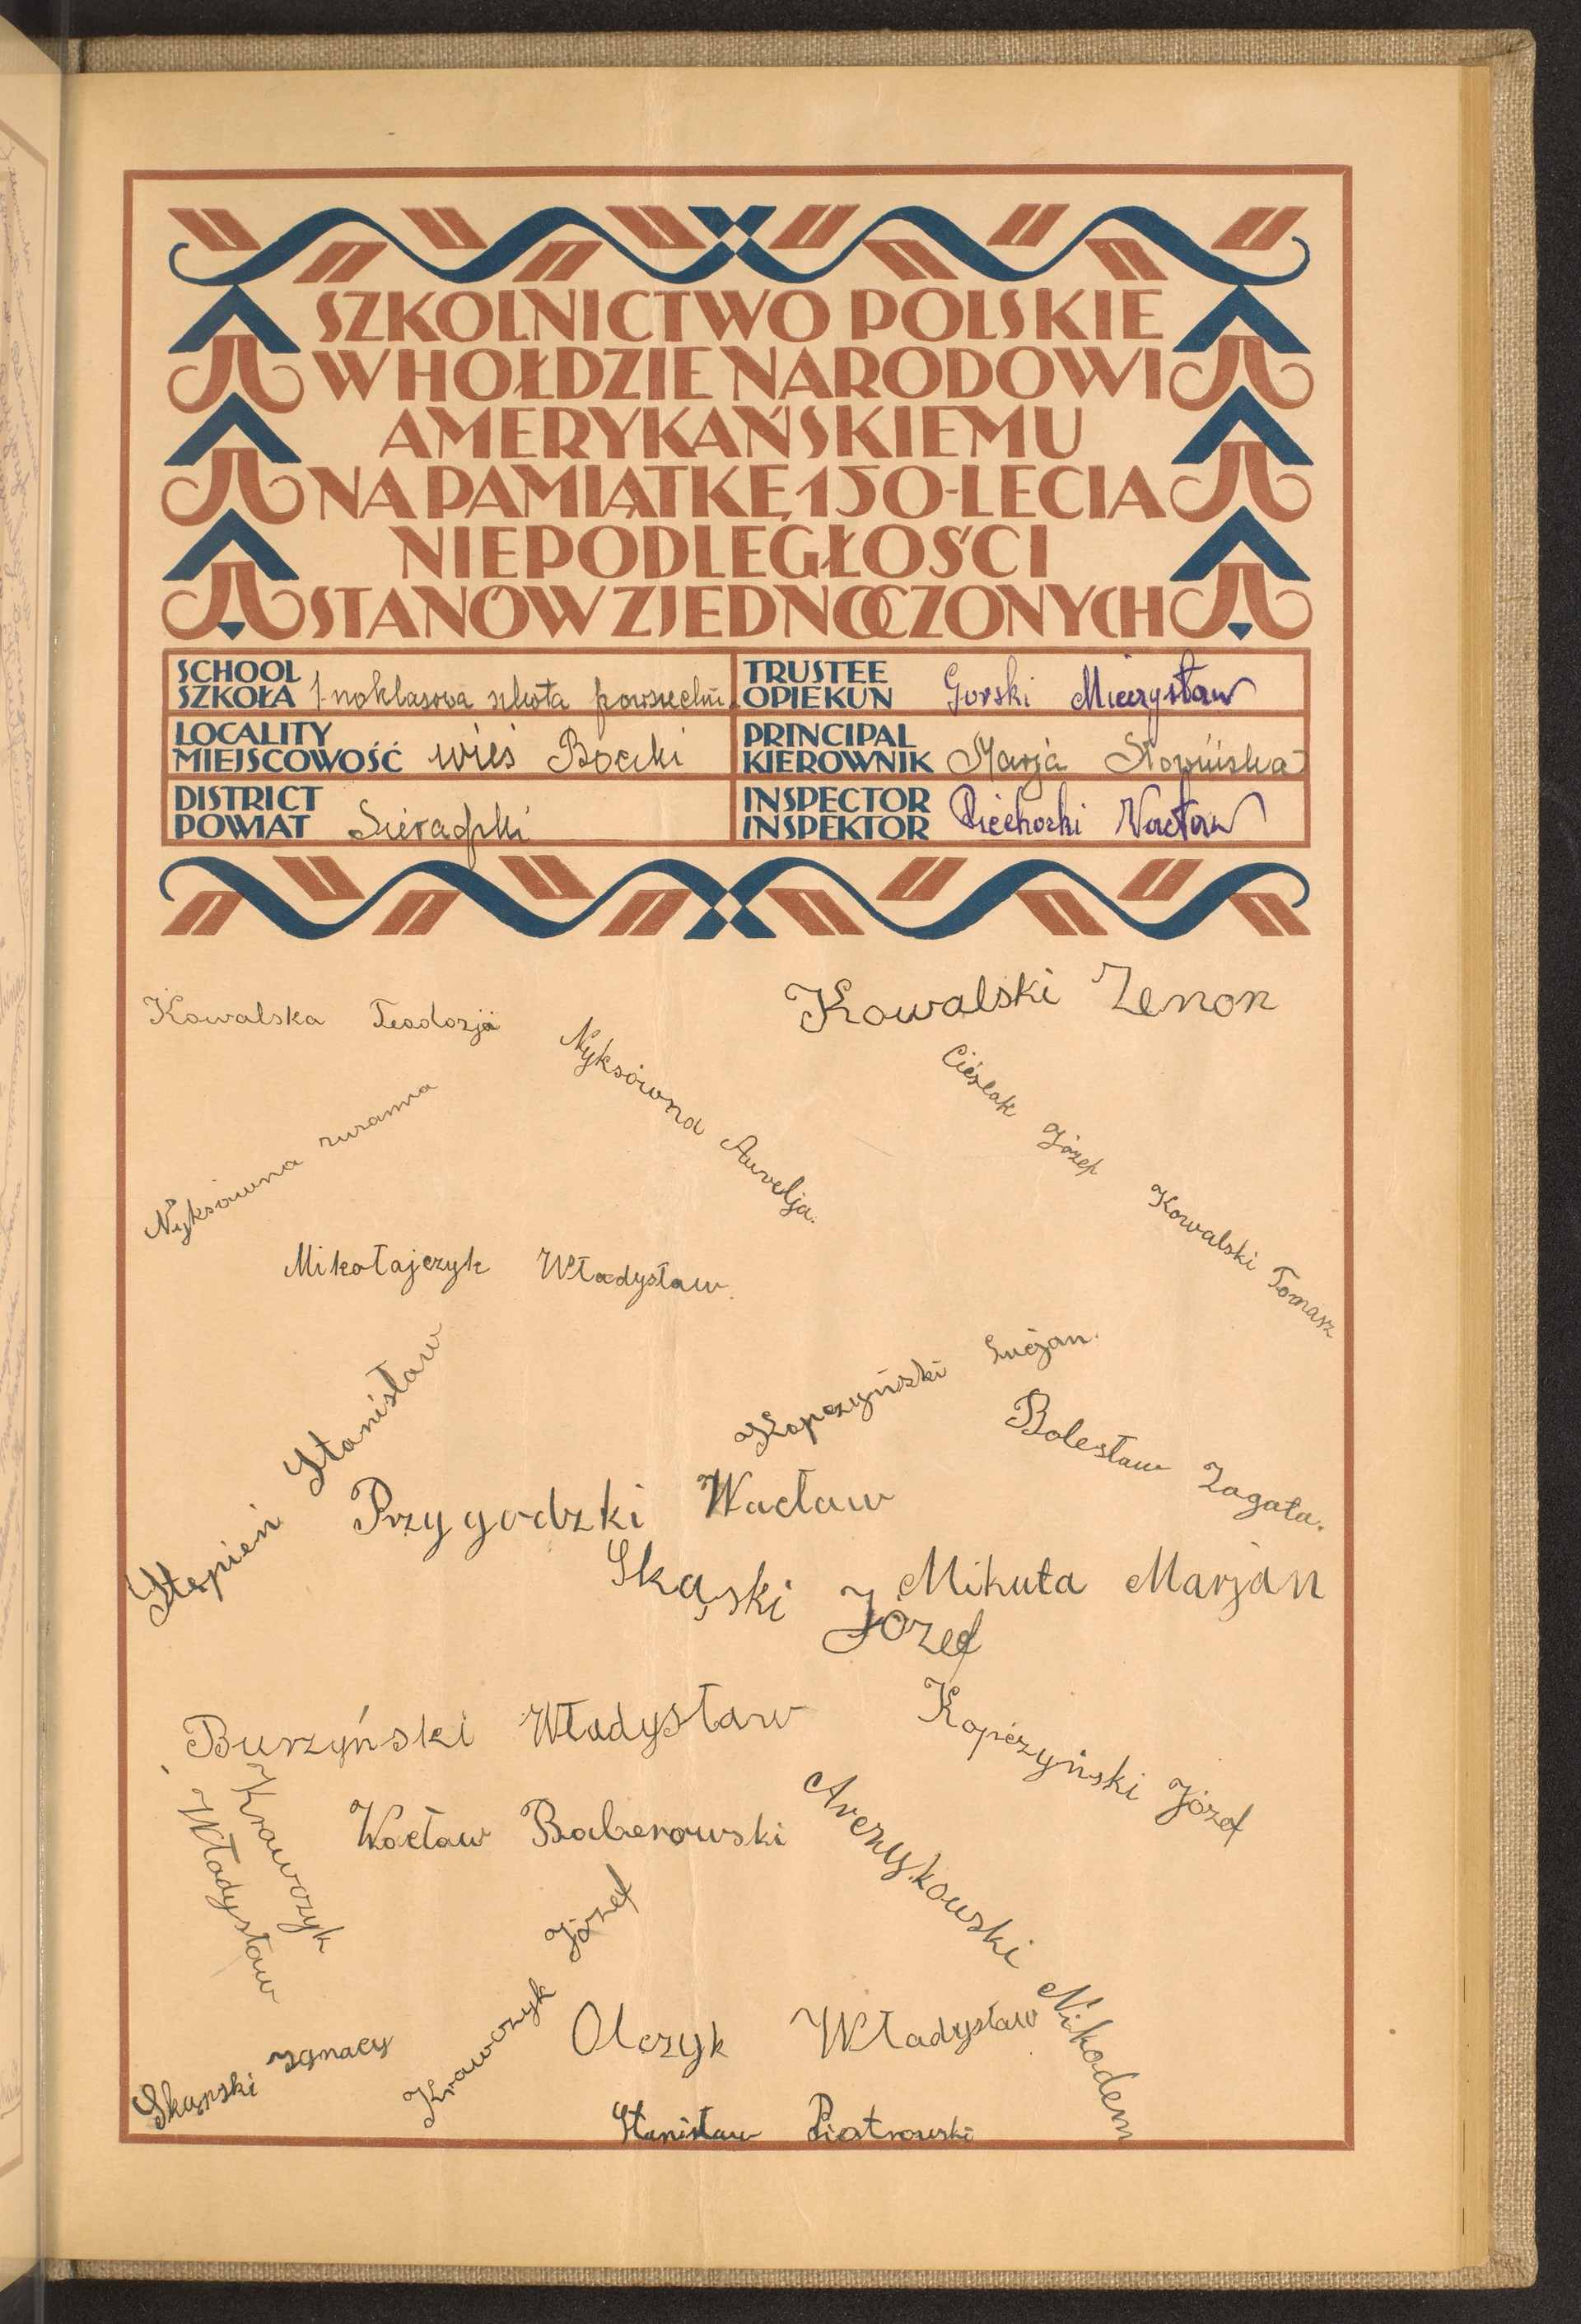 SZKOLNICTWO POLSKIE
W HOŁDZIE NARODOWI
AMERYKAŃSKIEMU
NA PAMIĄTKĘ 150-LECIA
NIEPODLEGŁOŚCI
STANÓW ZJEDNOCZONYCH
SCHOOL
SZKOŁA 1-noklasowa szkoła powszechn.
TRUSTEE
OPIEKUN Gorski Mieczysław
LOCALITY
MIEJSCOWOŚĆ wieś Boczki
PRINCIPAL
KIEROWNIK Marja
DISTRICT
POWIAT Sieradzki
INSPECTOR
INSPEKTOR Piechocki Wacław
Kowalska Teodozja
Kowalski Zenon
Nyksówna Aurelja.
Cieślak Józef
Nyksówna zuzanna
Kowalski Tomasz
Mikołajczyk Władysław.
Kopczyński Lucjan.
Stępień Stanisław
Bolesław Zagata.
Przygodzki Wacław
Skąski Józef
Mikuta Marjan
Burzyński Władysław
Kopczyński Józef
Krawczyk
Władysław
Wacław Baberowski
Arczykowski Nikodem
Krawczyk Józef
Olczyk Władysław
Skąpski Ignacy
Stanisław Piotrowski